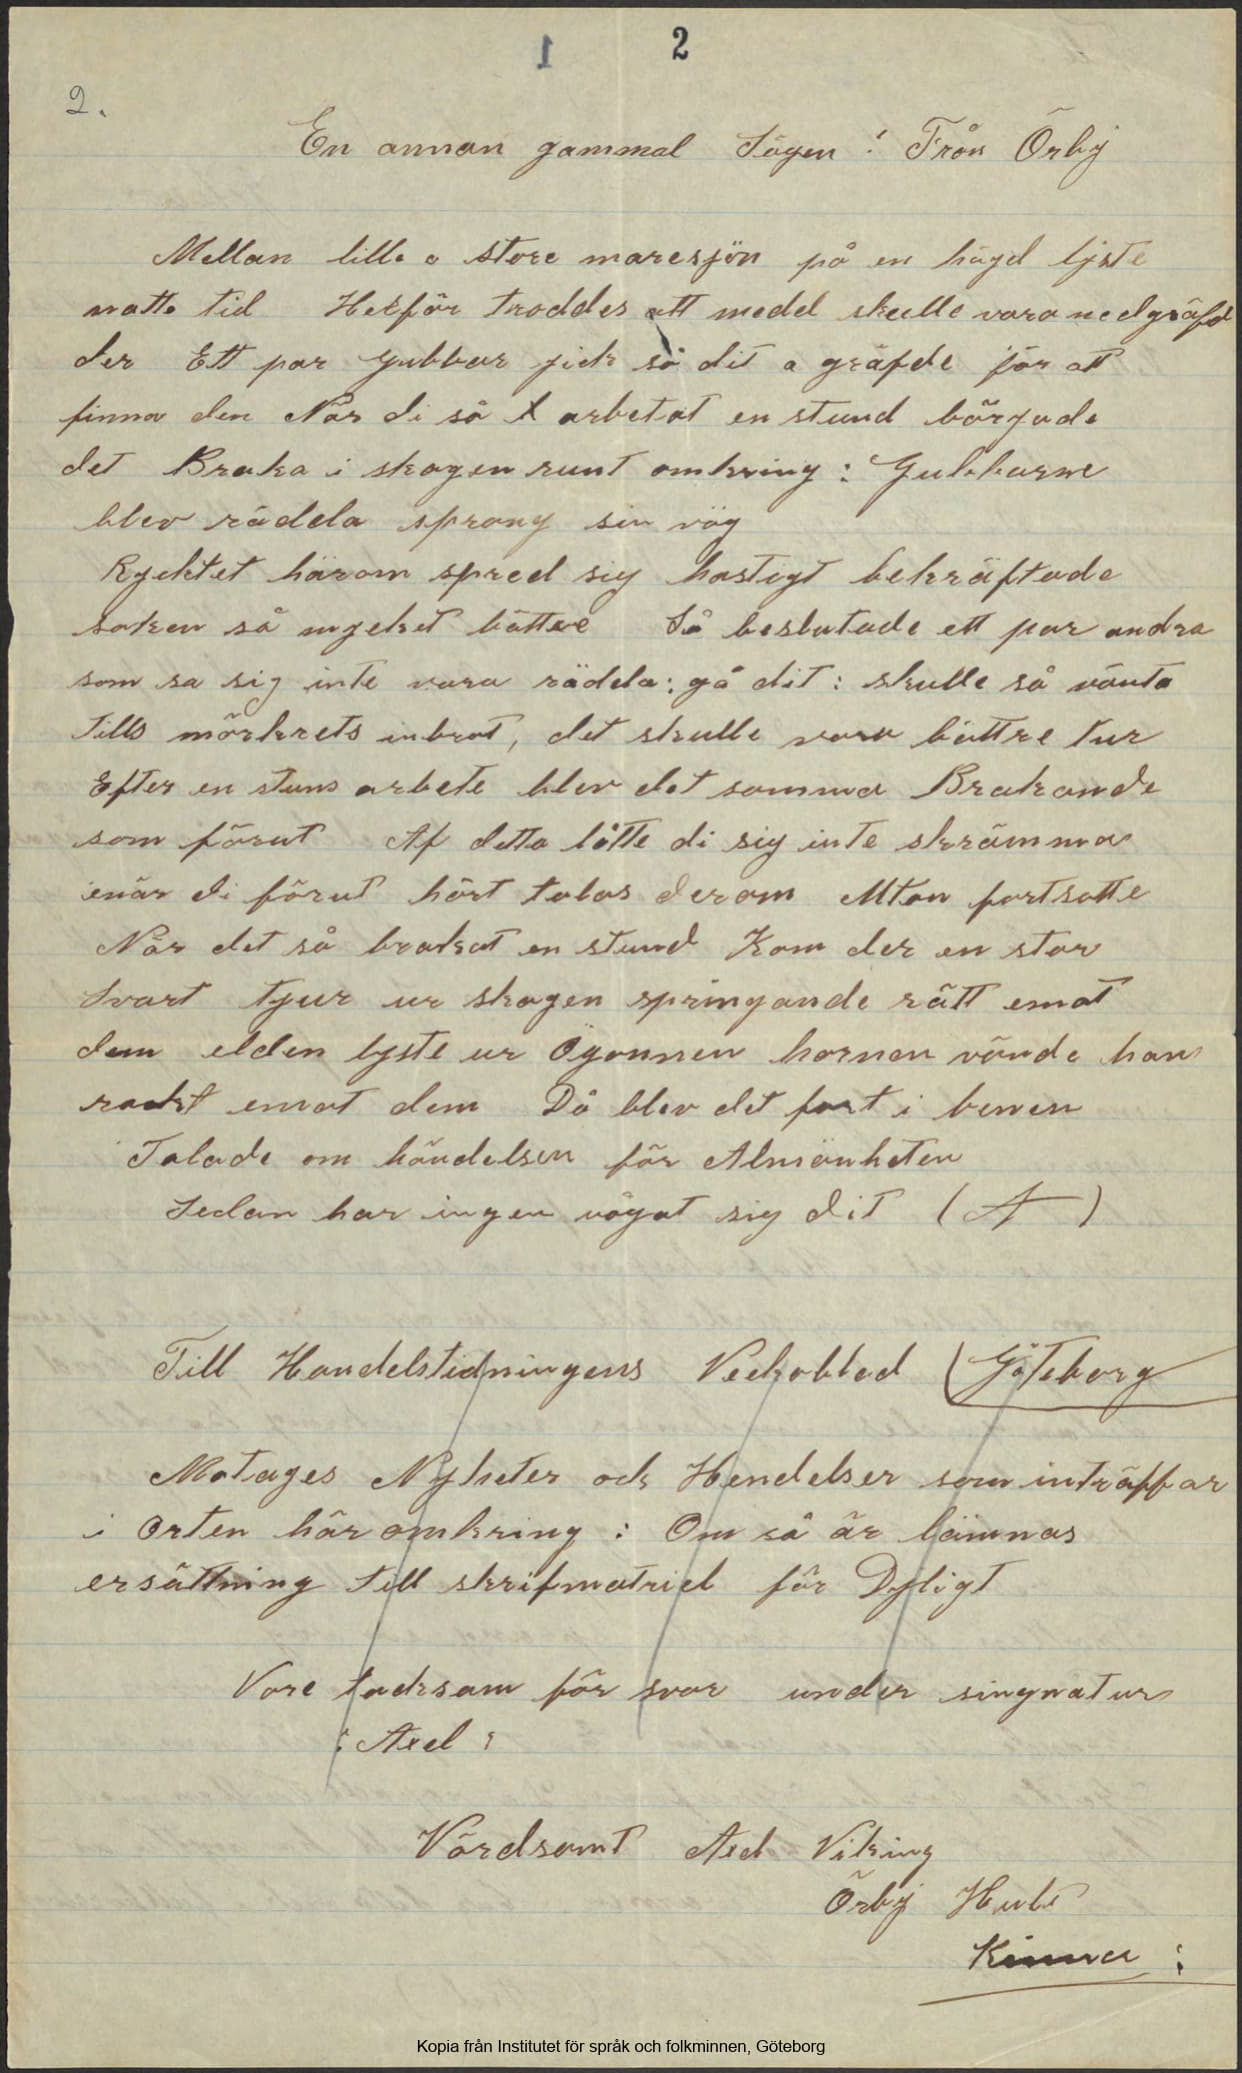 1 2
2.
En annan gammal Sägen : Från Örby
Mellan lille o store maresjön på en högd lyste
natte tid Hetför troddes att medel skulle vara nedgräfd
der Ett par Gubbar jick så dit a gräfde för att
finna den När di så arbetat en stund började
det Braka i skogen runt omkring : Gubbarne
blev rädda sprang sin väg
Ryktet härom spred sig hastigt bekräftade
saken så mycket bättre Så beslutade ett par andra
som sa sig inte vara rädda : gå dit : skulle så vänta
tills mörkrets inbrot, det skulle vara bättre tur
Efter en stuns arbete blev det samma Brakande
som förut Af detta lätte di sig inte skrämma
enär di förut hört talas derom Utan fortsatte
När det så brakat en stund Kom der en stor
Svart tjur ur skogen springande rätt emot
dem elden lyste ur Ögonnen hornen vände han
rackt emot dem Då blev det fart i benen
Talade om händelsen för Almänheten
Sedan har ingen vågat sig dit ( A )
Till Handelstidningens Veckoblad (Göteborg
Motages Nyheter och Hendelser som inträffar
i Orten här omkring : Om så är lämnas
ersättning till skrifmatriel för Dyligt
Vore tacksam för svar under singnatur
: Axel :
Värdsamt Axel Viking
Örby Hult
Kinna :
Kopia från Institutet för språk och folkminnen, Göteborg